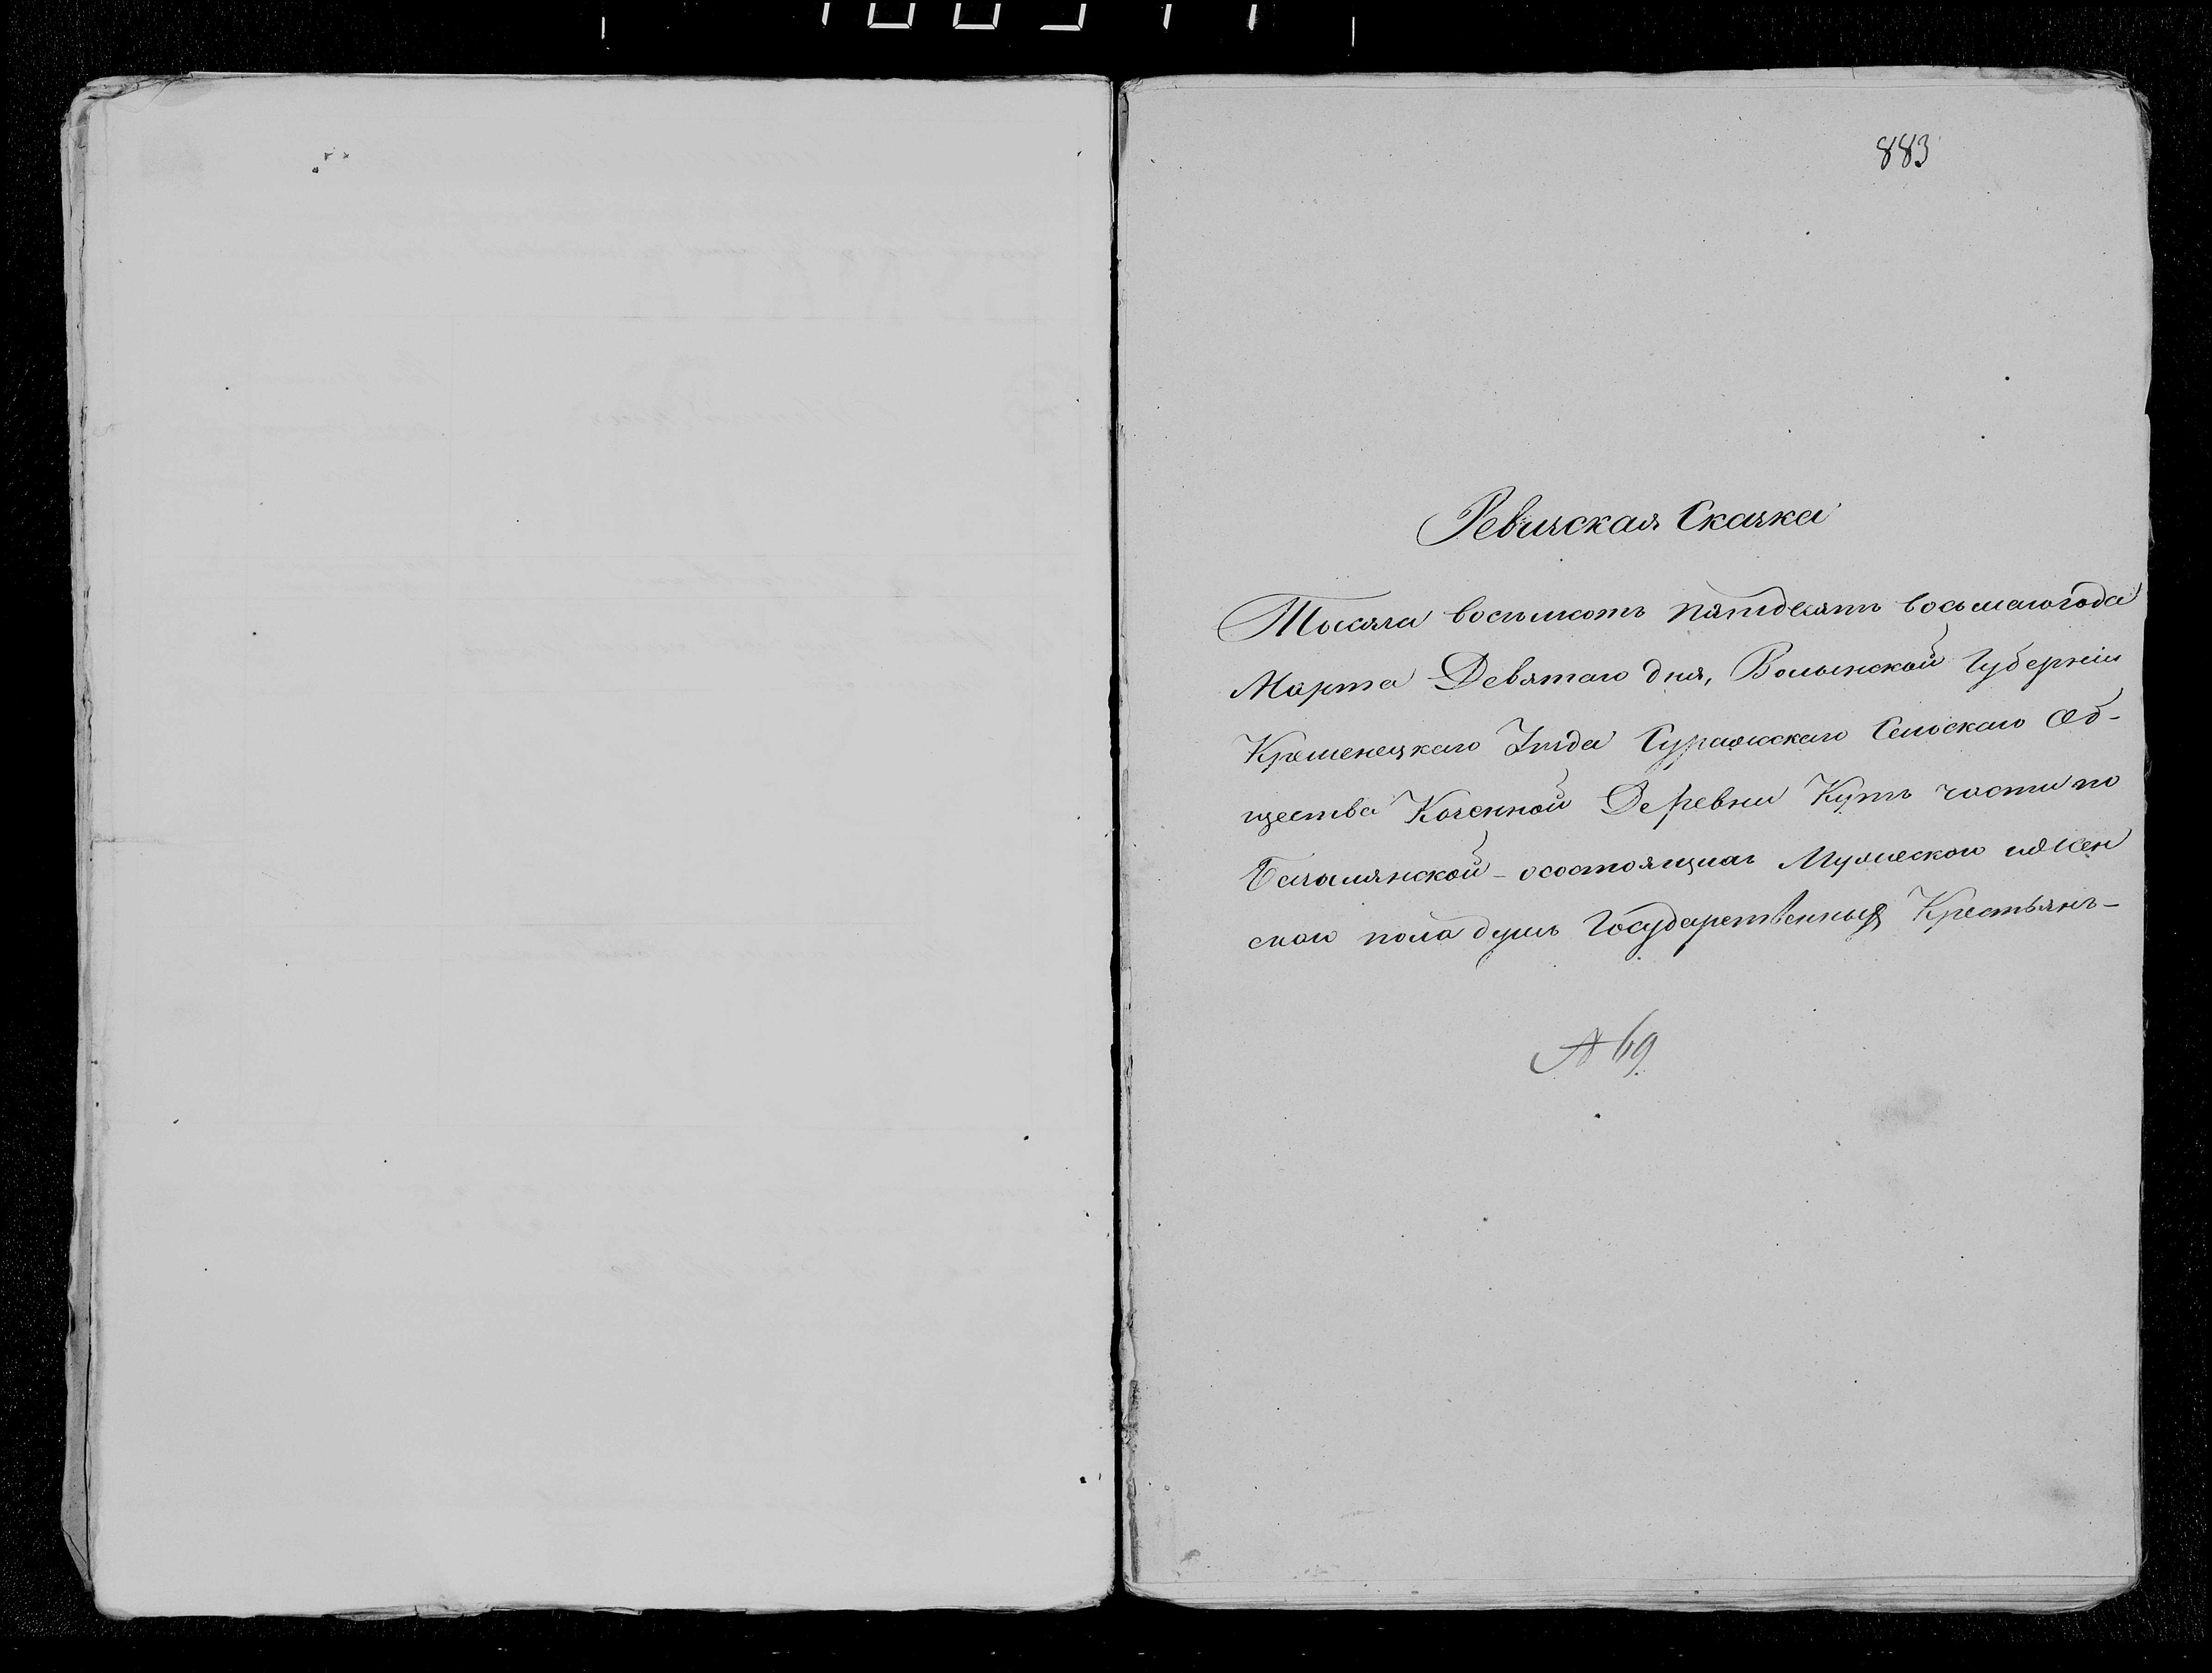 883
Ревизская Сказка
Тысяча восьмсотъ пятдесятъ восьмаго года
Марта Девятаго дня, Волынской Губерніи
Кременецкаго Уезда Суражскаго Сельскаго Об-
щества Козенной Деревни Кутъ части по
Базылянской - осостоящихъ Мужескаго иЖен
скаго пола душъ Государственныхъ Крестьянъ-
№ 69